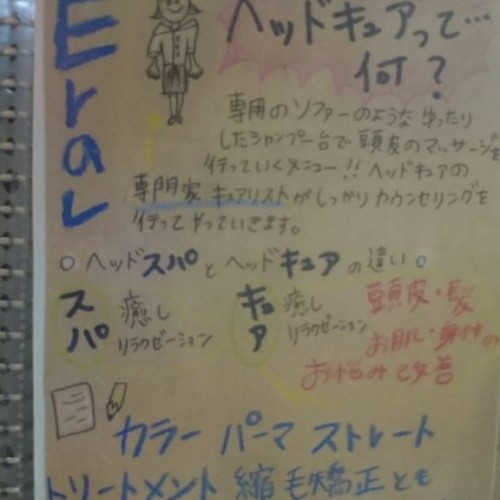 Eral
ヘッドキュアって…
何?
専用のソファーのような ゆったり
したシャンプー台で頭皮のマッサージを
行っていくメニュー!! ヘッドキュアの
専門家 キュアリストがしっかりカウンセリングを
行ってやっていきます。
○ ヘッドスパとヘッドキュアの違い ○
スパ 癒し リラクゼーション
キュア 癒し リラクゼーション
頭皮・髪
お肌・身体の
お悩みも改善
カラー パーマ ストレート
トリートメント 縮毛矯正とも